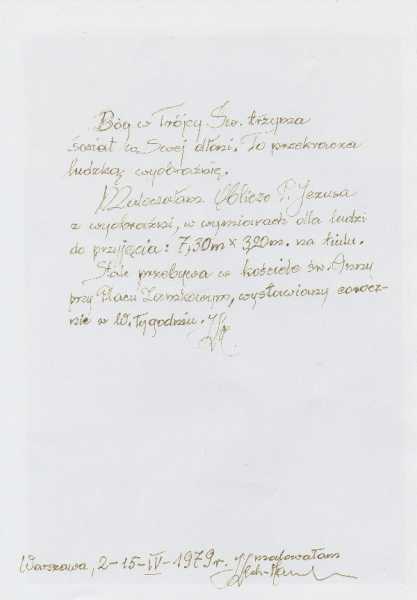 Bóg w Trójcy Św. trzyma
świat w Swej dłoni. To przekracza
ludzką wyobraźnię.
Malowałam Oblicze P. Jezusa
z wyobraźni, w wymiarach dla ludzi
do przyjęcia: 7,30m × 3,20m. na tiulu.
Stale przebywa w kościele św. Anny
przy Placu Zamkowym, wystawiany corocz-
nie w W. Tygodniu.
Warszawa, 2-15-IV-1979r. malowałam